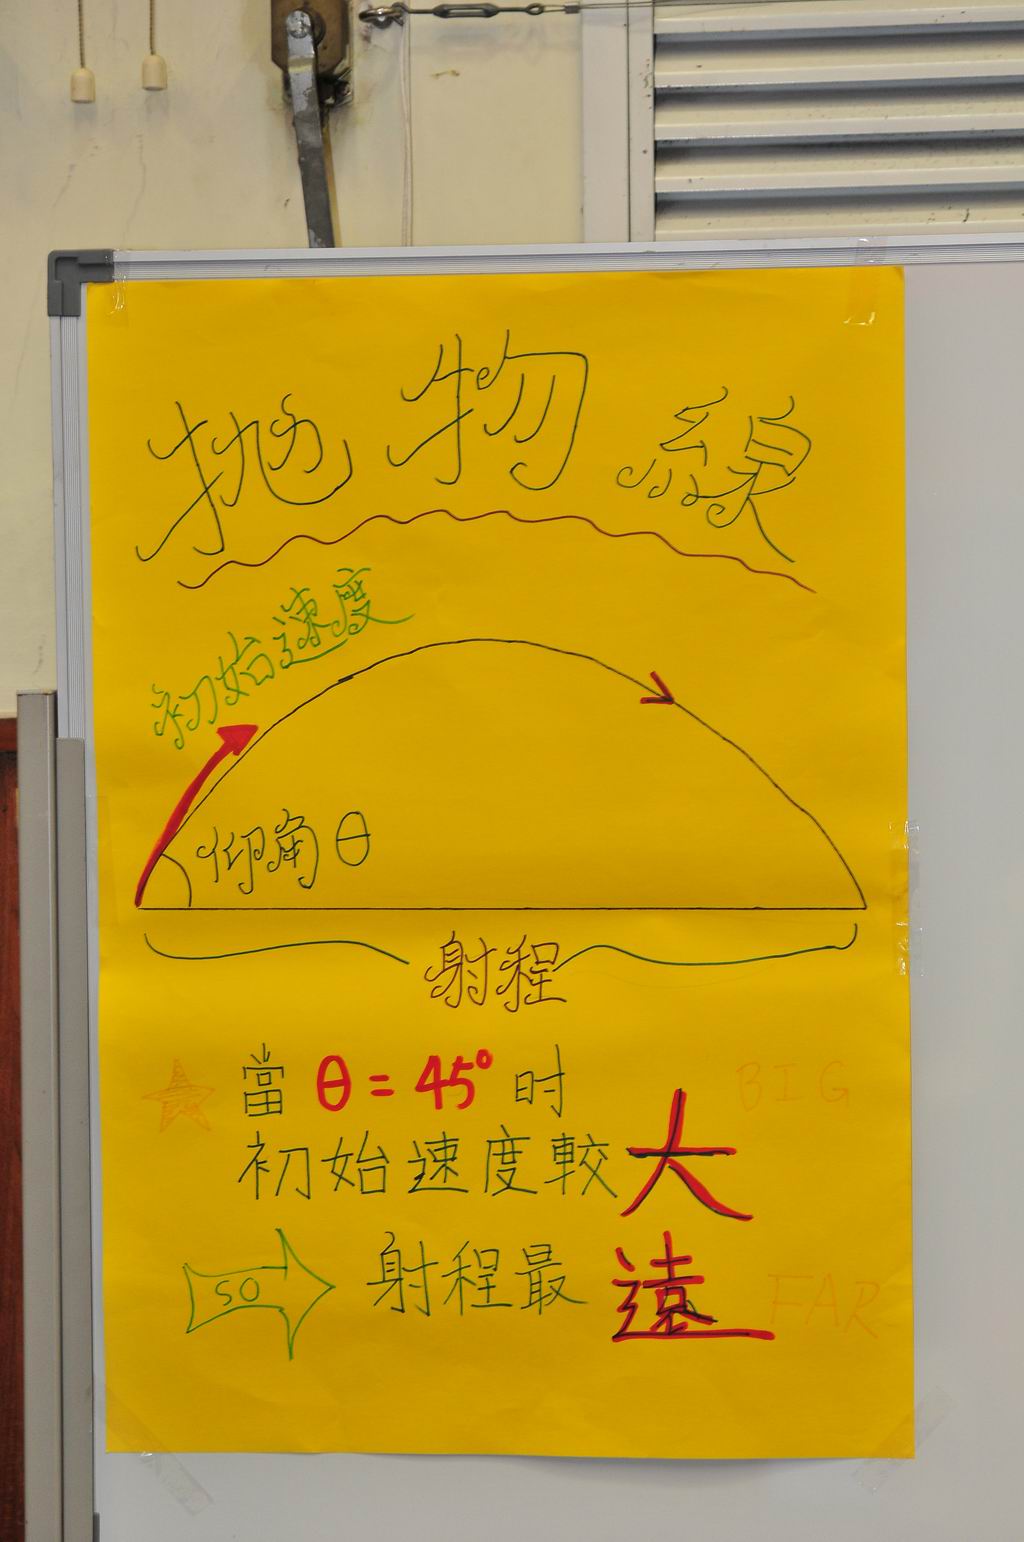 拋物線
初始速度
仰角θ
射程
當θ=45°时
BIG
初始速度較大
SO 射程最遠
FAR